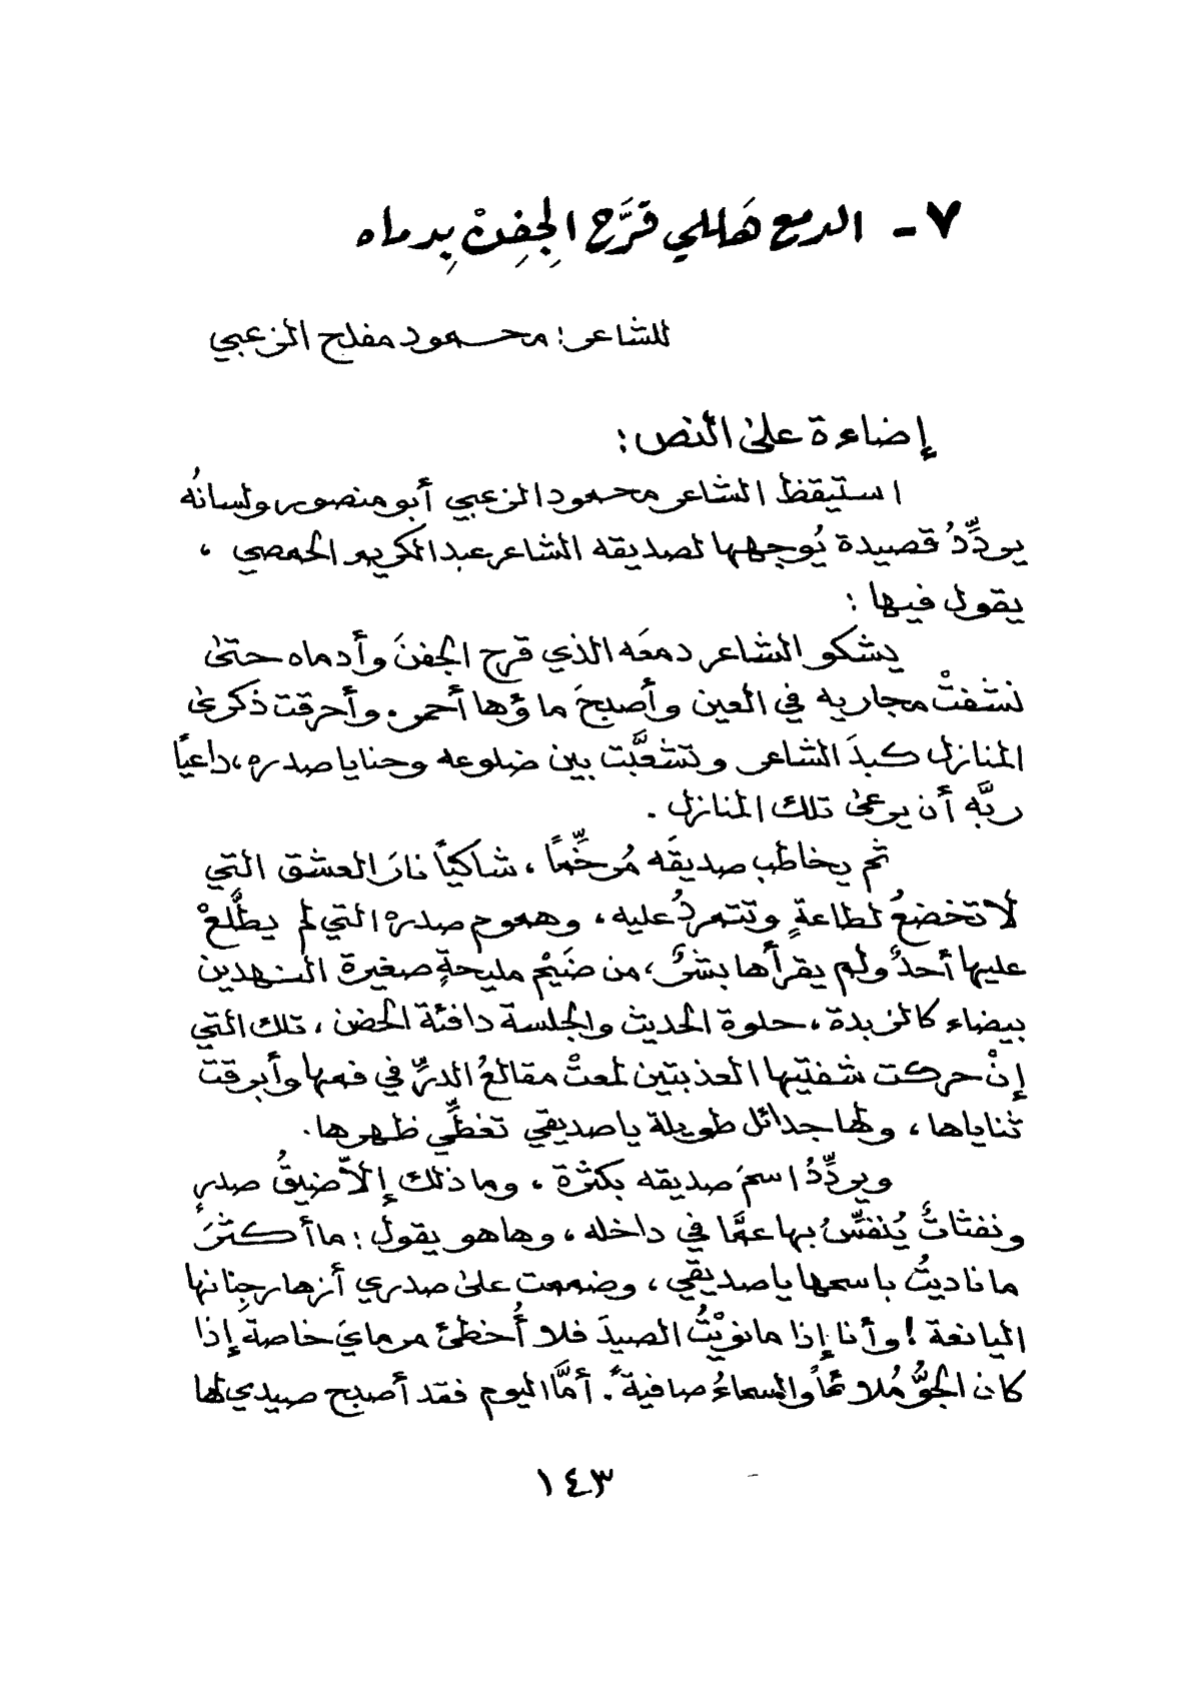 ٧ - الدمع هَللي قرَّح الجِفِنْ بِدماه
للشاعر: محمود مفلح الزعبي
إضاءة على النص:
استيقظ الشاعر محمود الزعبي أبو منصور ولسانُه
يردِّدُ قصيدة يُوجهها لصديقه الشاعر عبدالكريم الحمصي ،
يقول فيها :
يشكو الشاعر دمعَه الذي قرح الجفنَ وأدماه حتى
نشفتْ مجاريه في العين وأصبحَ ماؤها أحمر. وأحرقت ذكرى
المنازل كبدَ الشاعر وتشعَّبت بين ضلوعه وحنايا صدره، داعياً
ربَّه أن يرعى تلك المنازل .
ثم يخاطب صديقَه مُرخِّماً ، شاكياً نارَ العشق التي
لا تخضعُ لطاعةٍ وتتمردُ عليه، وهموم صدره التي لم يطَّلعْ
عليها أحدٌ ولم يقرأها بشرٌ، من ضَيْم مليحةٍ صغيرة النهدين
بيضاء كالزبدة ، حلوة الحديث والجلسة دافئة الحضن ، تلك التي
إنْ حركت شفتيها العذبتين لمعتْ مقالعُ الدرِّ في فمها وأبرقت
ثناياها ، ولها جدائل طويلة يا صديقي تغطِّي ظهرها.
ويردِّدُ اسمَ صديقه بكثرة ، وما ذلك إلاّ ضيقُ صدرٍ
ونفثاتٌ يُنفِّسُ بها عمَّا في داخله ، وها هو يقول : ما أكثرَ
ما ناديتُ باسمها يا صديقي ، وضممت على صدري أزهار جِنانها
اليانعة ! وأنا إذا ما نويْتُ الصيدَ فلا أُخطئ مرمايَ خاصة إذا
كان الجوُّ مُلائماً والسماءُ صافيةً. أمَّا اليوم فقد أصبح صيدي لها
١٤٣